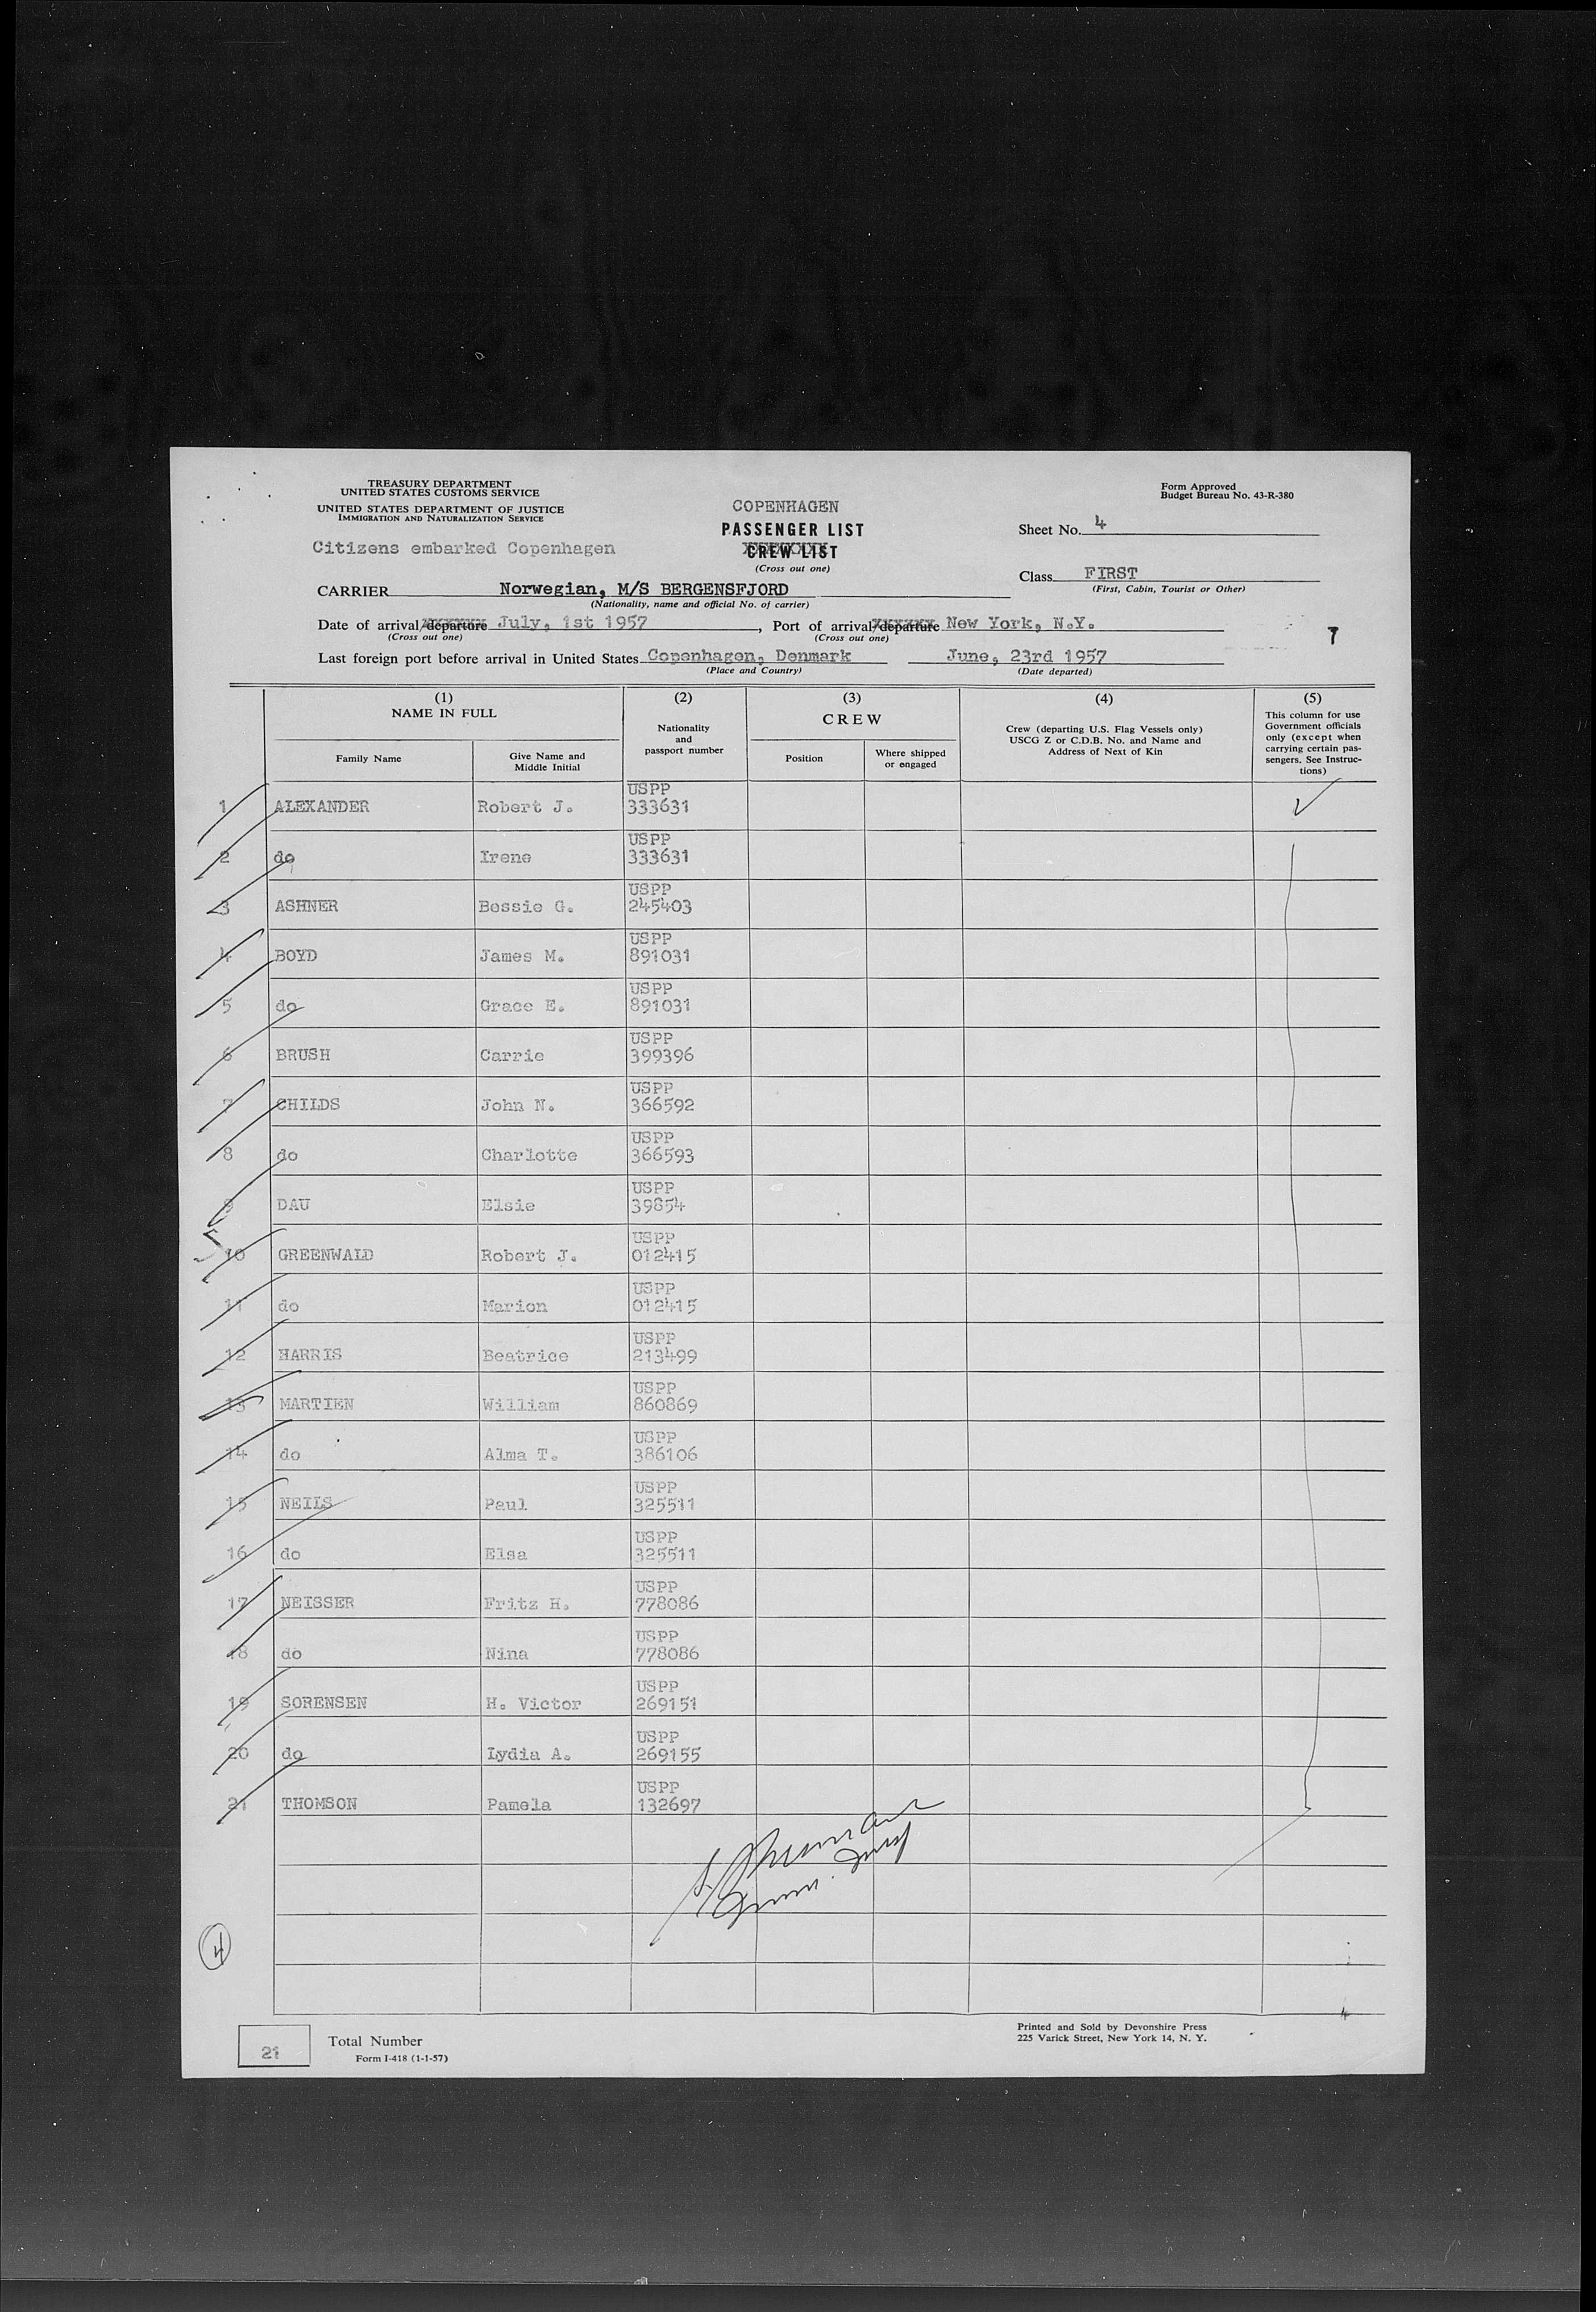 TREASURY DEPARTMENT
UNITED STATES CUSTOMS SERVICE
UNITED STATES DEPARTMENT OF JUSTICE
IMMIGRATION AND NATURALIZATION SERVICE
Form Approved
Budget Bureau No. 43-R-380
COPENHAGEN
PASSENGER LIST
CREW LIST
(Cross out one)
Sheet No. 4
Citizens embarked Copenhagen
Class FIRST
(First, Cabin, Tourist or Other)
CARRIER Norwegian, M/S BERGENSFJORD
(Nationality, name and official No. of carrier)
Date of arrival/departure July, 1st 1957, Port of arrival/departure New York, N.Y.
(Cross out one) (Cross out one)
7
Last foreign port before arrival in United States Copenhagen, Denmark June, 23rd 1957
(Place and Country) (Date departed)
(1) (2) (3) (4) (5)
NAME IN FULL
Family Name
Give Name and Middle Initial
Nationality and passport number
CREW
Position
Where shipped or engaged
Crew (departing U.S. Flag Vessels only)
USCG Z or C.D.B. No. and Name and
Address of Next of Kin
This column for use
Government officials
only (except when
carrying certain pas-
sengers. See Instruc-
tions)
1 ALEXANDER Robert J. USPP 333631
2 do Irene USPP 333631
3 ASHNER Bessie G. USPP 245403
4 BOYD James M. USPP 891031
5 do Grace E. USPP 891031
6 BRUSH Carrie USPP 399396
7 CHILDS John N. USPP 366592
8 do Charlotte USPP 366593
9 DAU Elsie USPP 39854
10 GREENWALD Robert J. USPP 012415
11 do Marion USPP 012415
12 HARRIS Beatrice USPP 213499
13 MARTIEN William USPP 860869
14 do Alma T. USPP 386106
15 NEILS Paul USPP 325511
16 do Elsa USPP 325511
17 NEISSER Fritz H. USPP 778086
18 do Nina USPP 778086
19 SORENSEN H. Victor USPP 269151
20 do Lydia A. USPP 269155
21 THOMSON Pamela USPP 132697
4
21 Total Number
Form I-418 (1-1-57)
Printed and Sold by Devonshire Press
225 Varick Street, New York 14, N. Y.